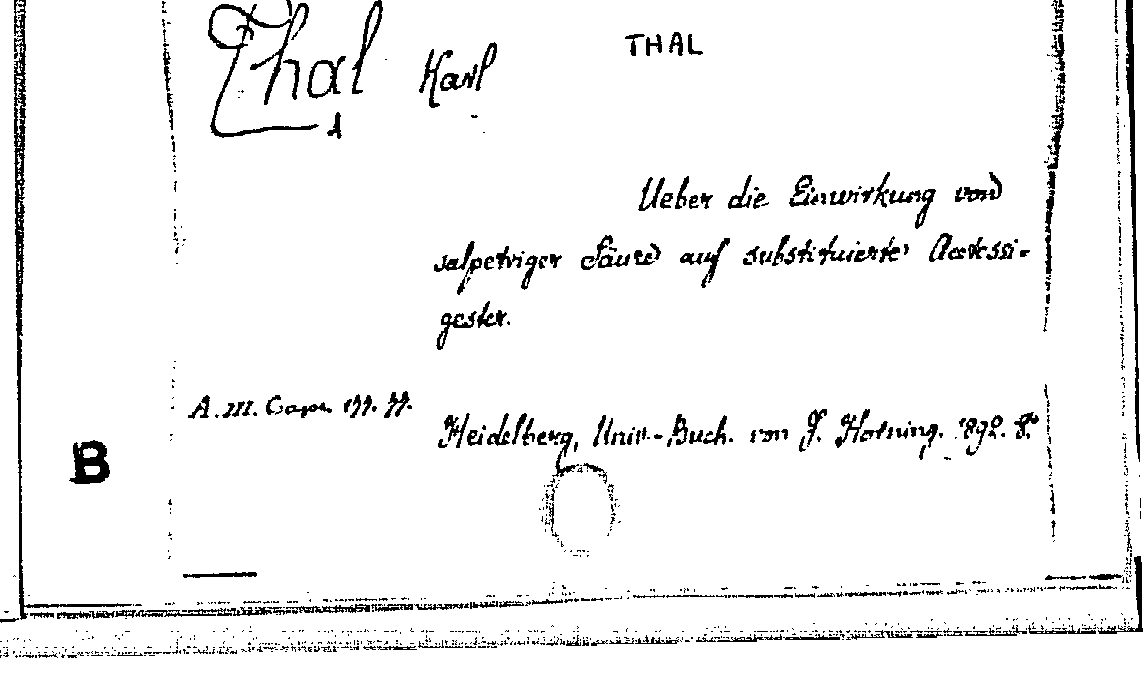 Thal Karl THAL
1
Ueber die Einwirkung von
salpetriger Säure auf substituierte Acetessi-
gester.
A. III. Caps.
Heidelberg, Univ.-Buch. von J. Horning. 1892. 8°
B